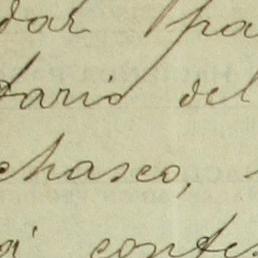 dar pa
tario del
chasco,
á conte